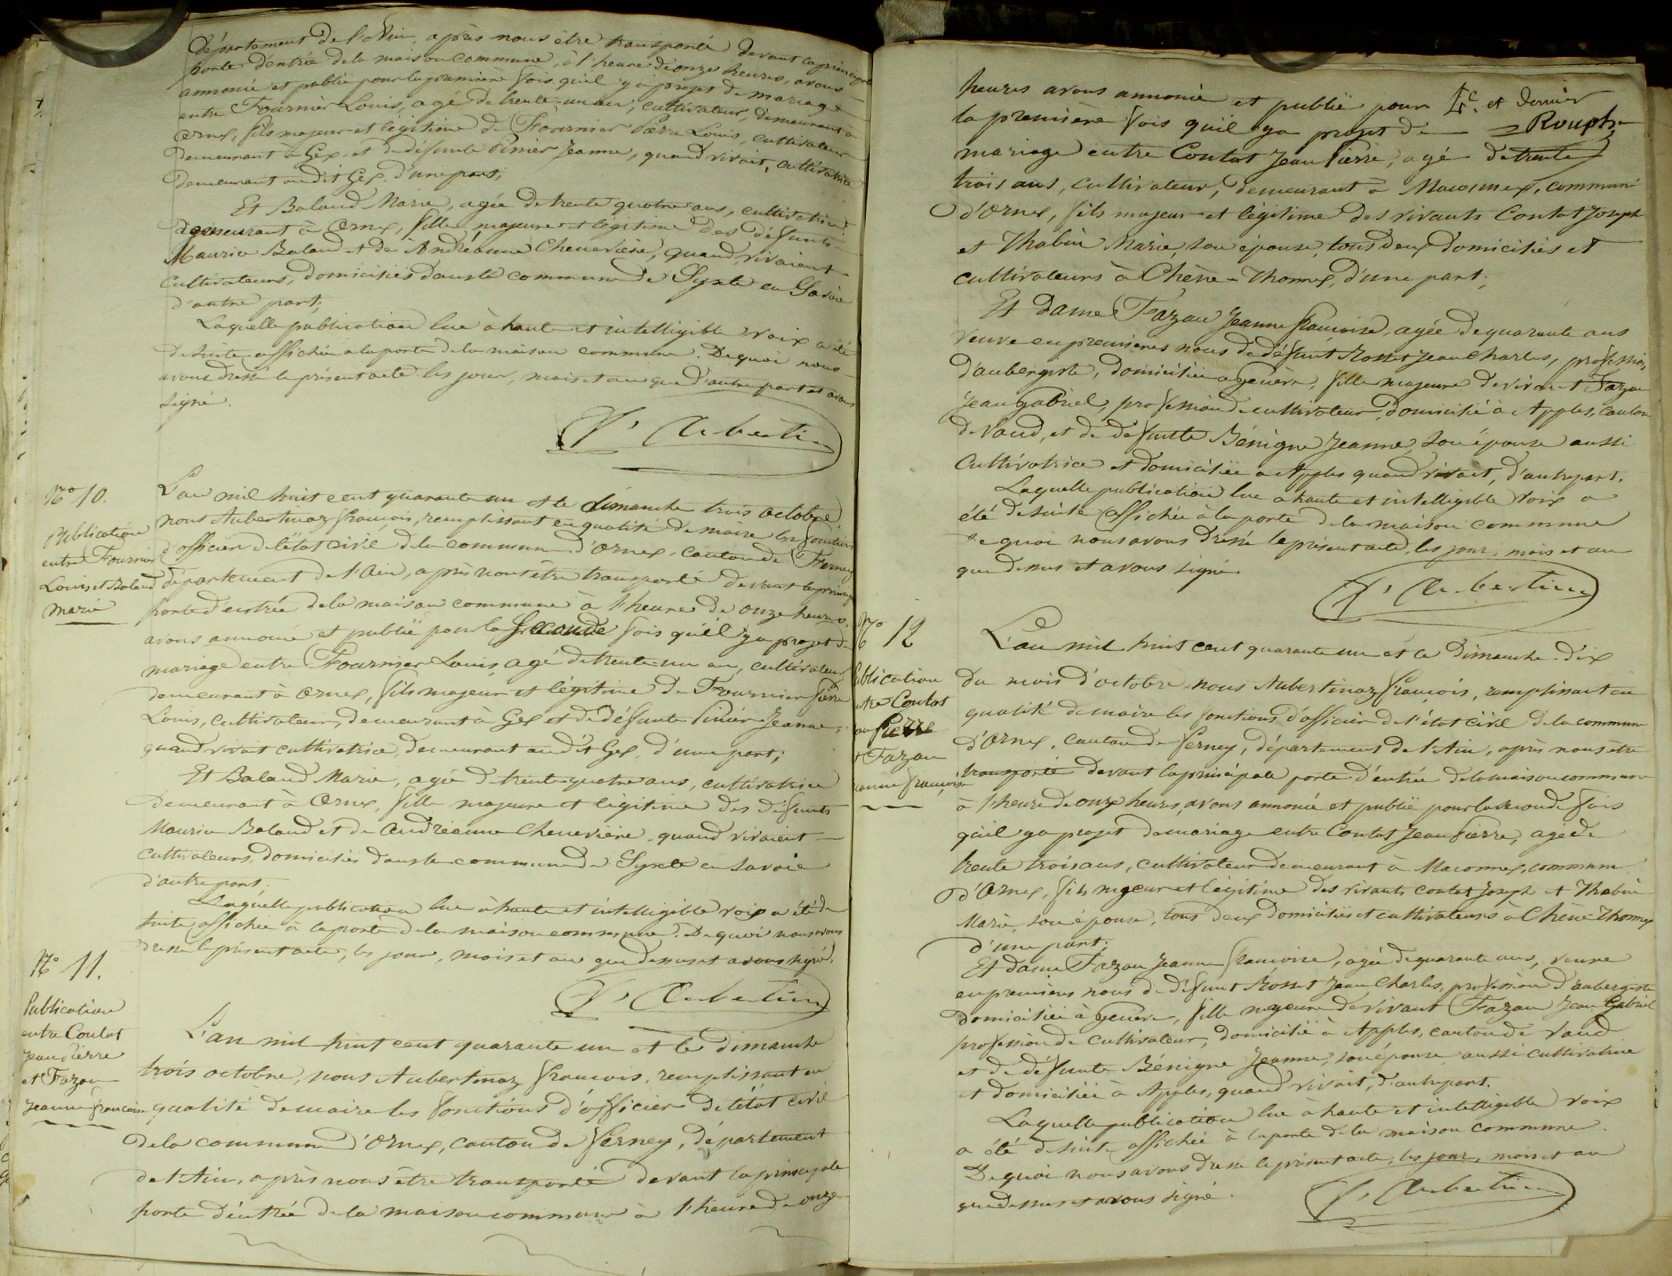 département de l'Ain, après nous être transporté devant la principale
porte d'entrée de la maison commune, à l'heure d'onze heures, avons
annoncé et publié pour la première fois qu'il y a projet de mariage
entre Fournier Louis, agé de trente-un an, cultivateur, demeurant à
Ornex, fils majeur et légitime de Fournier Pierre Louis, cultivateur
demeurant à Gex, et de défunte Jeanne, quand vivait, cultivatrice
demeurant audit Gex, d'une part;
Et Baland Marie, agée de trente quatre ans, cultivatrice
demeurant à Ornex, fille majeure et légitime des défunts
Maurice Baland et de Andréanne Chenevière, quand vivaient
cultivateurs, domiciliés dans la commune de en Savoie
d'autre part;
Laquelle publication lue à haute et intelligible voix a été
de suite affichée à la porte de la maison commune. De quoi nous
avons dressé le présent acte les jour, mois et an que d'autre part et avons
signé.
N° 10.
Publication
entre Fournier
Louis et Baland
Marie
L'an mil huit cent quarante un et le dimanche trois octobre
nous Aubertinaz françois, remplissant en qualité de maire les fonctions
d'officier de l'état civil de la commune d'Ornex, canton de Ferney
département de l'Ain, après nous être transporté devant la principale
porte d'entrée de la maison commune à l'heure de onze heures
avons annoncé et publié pour la seconde fois qu'il y a projet de
mariage entre Fournier Louis, agé de trente-un an, cultivateur
demeurant à Ornex, fils majeur et légitime de Fournier Pierre
Louis, cultivateur, demeurant à Gex et de défunte Jeanne,
quand vivait cultivatrice demeurant au dit Gex, d'une part;
Et Baland Marie, agée de trente-quatre ans, cultivatrice
demeurant à Ornex, fille majeure et légitime des défunts
Maurice Baland et de Andréanne Chenevière, quand vivaient
cultivateurs, domiciliés dans la commune de en Savoie
d'autre part;
Laquelle publication lue à haute et intelligible voix a été de
suite affichée à la porte de la maison commune. De quoi nous avons
dressé le présent acte, les jour, mois et an que dessus et avons signé.
N° 11.
Publication
entre Contat
Jean Pierre
et Fazan
Jeanne françoise
L'an mil huit cent quarante un et le dimanche
trois octobre, nous Aubertinaz françois, remplissant en
qualité de maire les fonctions d'officier de l'état civil
de la commune d'Ornex, canton de Ferney, département
de l'Ain, après nous être transporté devant la principale
porte d'entrée de la maison commune à l'heure de onze
heures avons annoncé et publié pour
la première fois qu'il y a projet de
et dernier
mariage entre Contat Jean Pierre, agé de trente
trois ans, cultivateur, demeurant à Maconnex, commune
d'Ornex, fils majeur et légitime des vivants Contat Joseph
et Thabin Marie, son épouse, tous deux domiciliés et
cultivateurs à Chène-Thonnex, d'une part;
Et Dame Fazan Jeanne françoise, agée de quarante ans
veuve en premières noces de défunt Rosset Jean Charles, profession
d'aubergiste, domiciliée à Genève, fille majeure de vivant Fazan
Jean Gabriel, profession de cultivateur, domicilié à Apples, canton
de Vaud, et de défunte Bénigne Jeanne, son épouse aussi
cultivatrice et domiciliée à Apples quand vivait, d'autre part.
Laquelle publication lue à haute et intelligible voix a
été de suite affichée à la porte de la maison commune
de quoi nous avons dressé le présent acte, les jour, mois et an
que dessus et avons signé.
N° 12
Publication
entre Contat
Jean Pierre
et Fazan
Jeanne françoise
L'an mil huit cent quarante un et le dimanche dix
du mois d'octobre nous Aubertinaz françois, remplissant en
qualité de maire les fonctions d'officier de l'état civil de la commune
d'Ornex, canton de Ferney, département de l'Ain, après nous être
transporté devant la principale porte d'entrée de la maison commune
à l'heure de onze heures, avons annoncé et publié pour la seconde fois
qu'il y a projet de mariage entre Contat Jean Pierre, agé de
trente trois ans, cultivateur demeurant à Maconnex, commune
d'Ornex, fils majeur et légitime des vivants Contat Joseph et Thabin
Marie, son épouse, tous deux domiciliés et cultivateurs à Chène Thonnex
d'une part;
Et dame Fazan Jeanne françoise, agée de quarante ans, veuve
en premières noces de défunt Rosset Jean Charles, profession d'aubergiste
domiciliée à Genève, fille majeure de vivant Fazan Jean Gabriel
profession de cultivateur, domicilié à Apples, canton de Vaud
et de défunte Bénigne Jeanne, son épouse aussi cultivatrice
et domiciliée à Apples, quand vivait, d'autre part.
Laquelle publication lue à haute et intelligible voix
a été de suite affichée à la porte de la maison commune.
De quoi nous avons dressé le présent acte, les jour, mois et an
que dessus et avons signé.